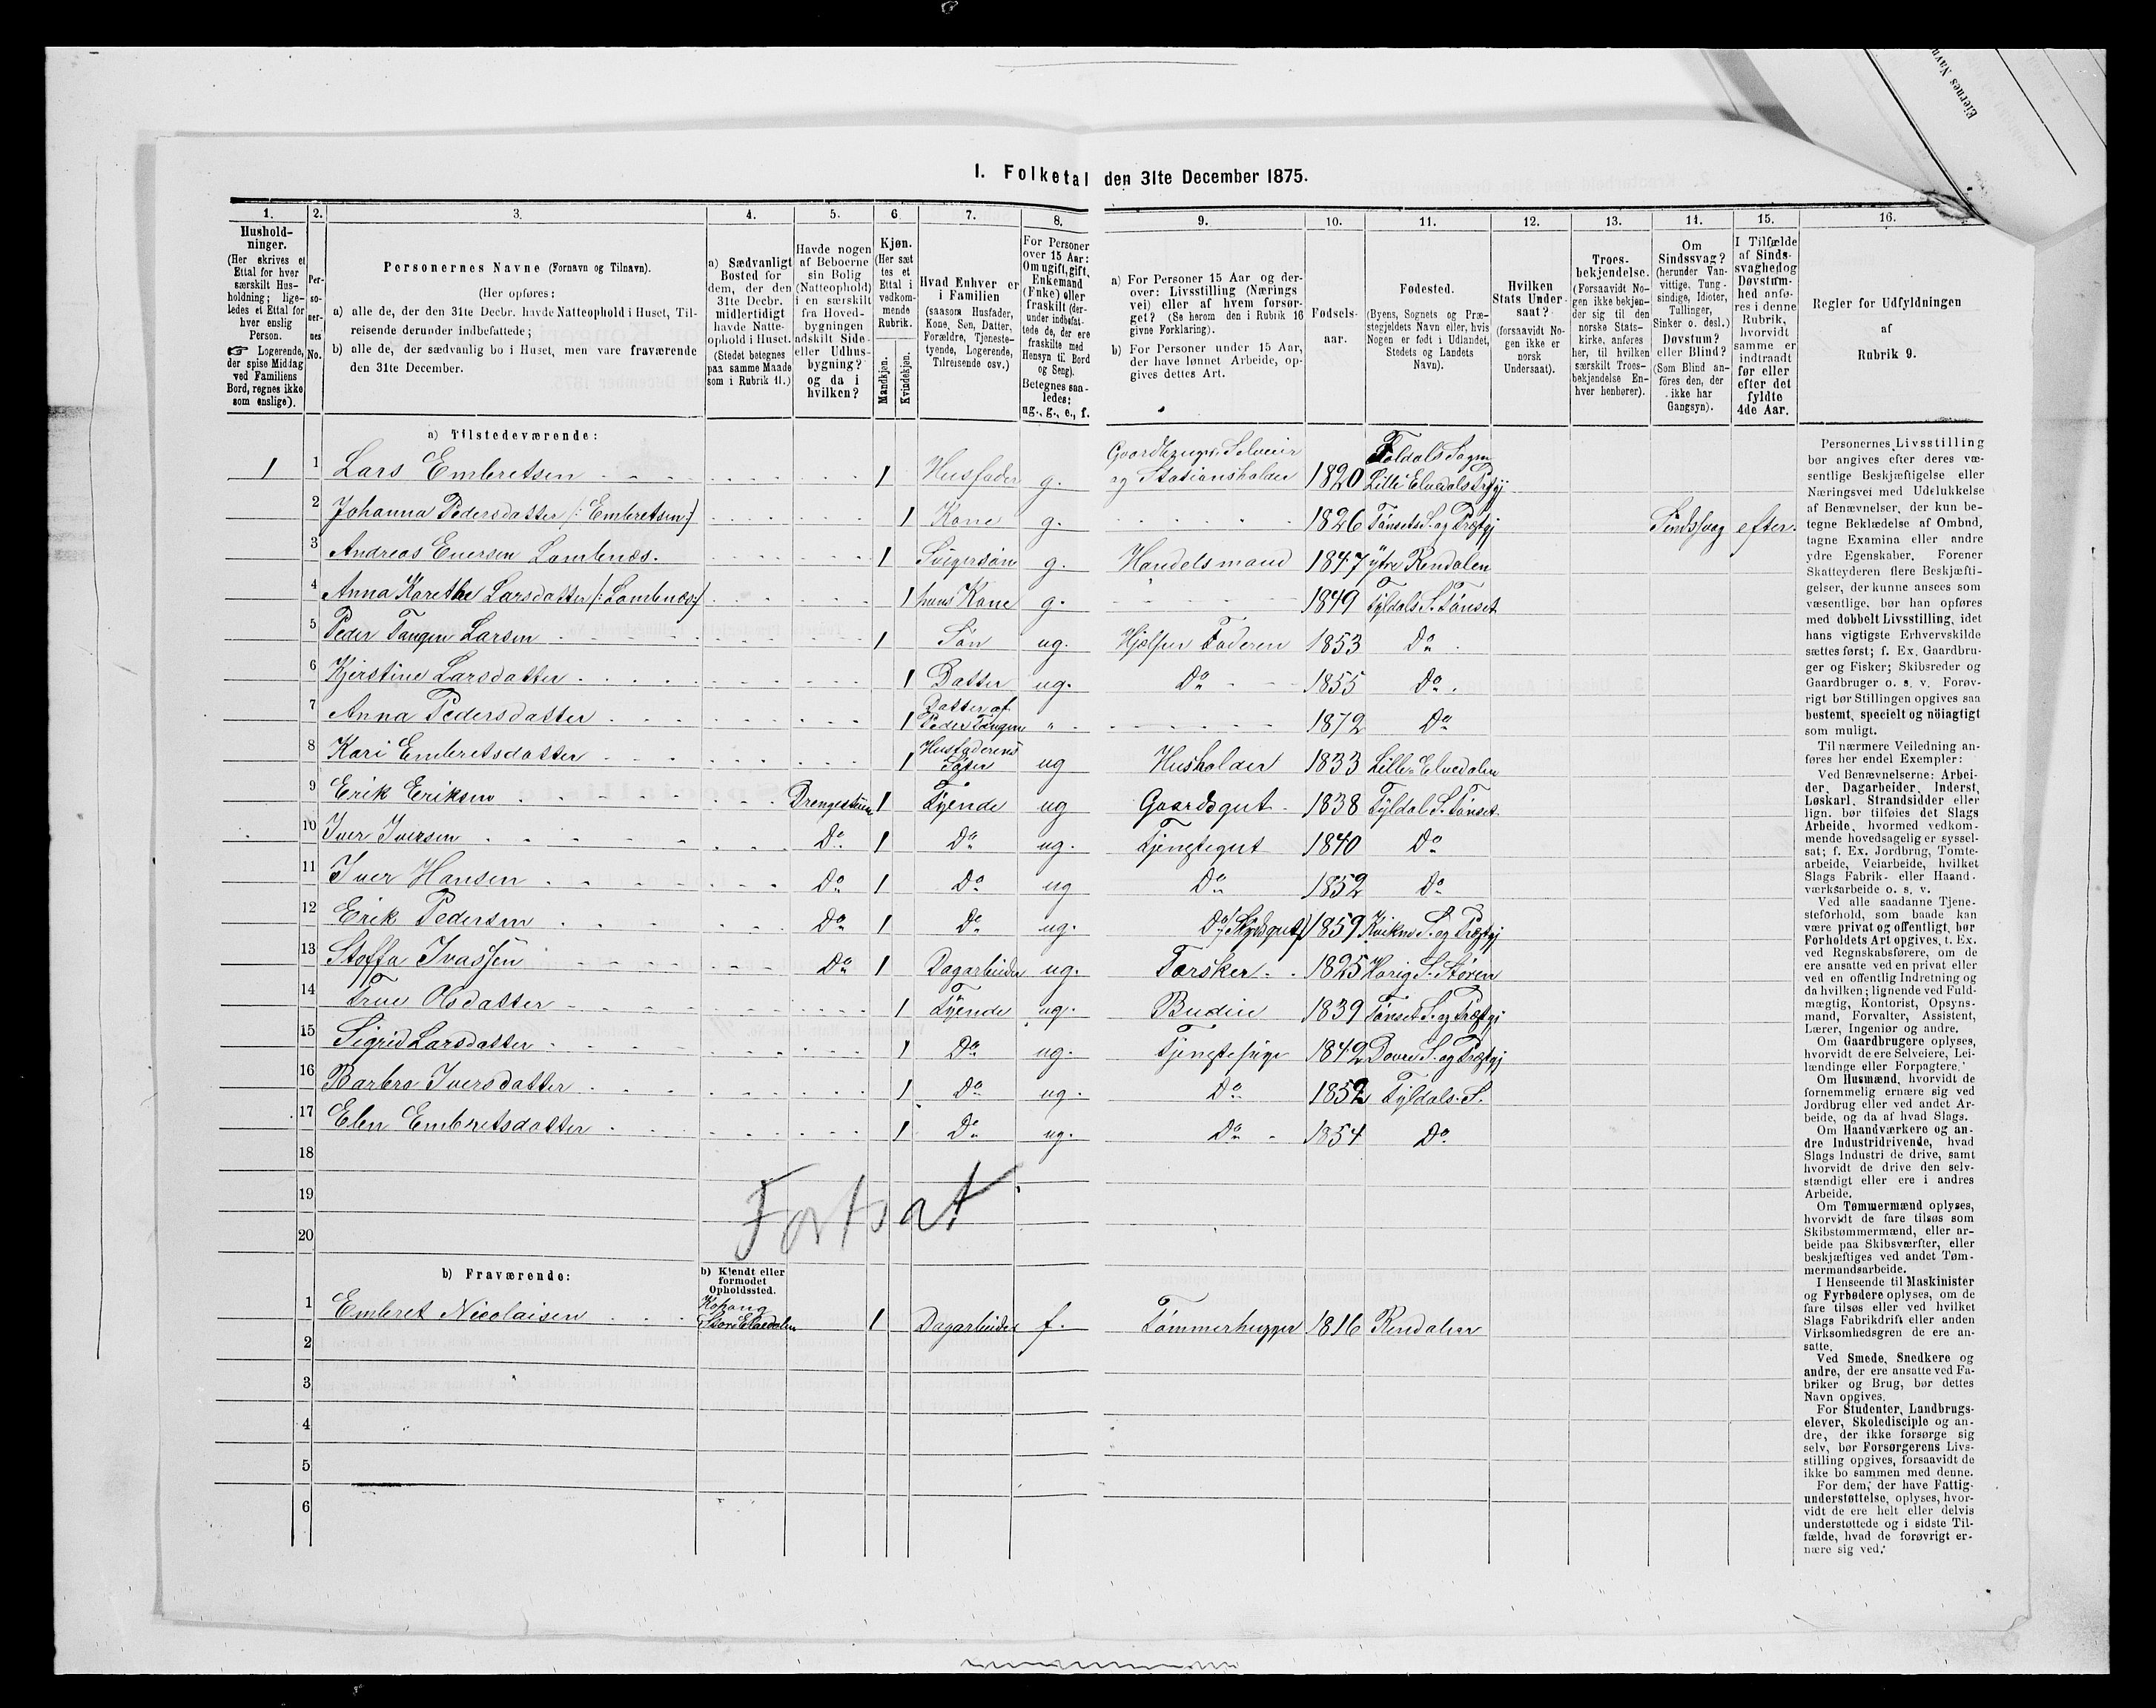 I. Folketal den 31te December 1875.
1. 2. 3. 4. 5. 6 7. 8. 9. 10. 11. 12. 13. 14. 15. 16.
Hushold-
ninger.
(Her skrives et
Ettal for hver
særskilt Hus-
holdning; lige-
ledes et Ettal for
hver enslig
Person.
☞ Logerende,
der spise Middag
ved Familiens
Bord, regnes ikke
som enslige).
Per-
so-
ner-
nes
No.
Personernes Navne (Fornavn og Tilnavn).
(Her opføres:
a) alle de, der den 31te Decbr. havde Natteophold i Huset, Til-
reisende derunder indbefattede;
b) alle de, der sædvanlig bo i Huset, men vare fraværende
den 31te December.
a) Sædvanligt
Bosted for
dem, der den
31te Decbr.
midlertidigt
havde Natte-
ophold i Huset.
(Stedet betegnes
paa samme Maade
som i Rubrik 11.)
Havde nogen
af Beboerne
sin Bolig
(Natteophold)
i en særskilt
fra Hoved-
bygningen
adskilt Side-
eller Udhus-
bygning?
og da i
hvilken?
Kjøn.
(Her sæt
tes et
Ettal i
vedkom-
mende
Rubrik.
Mandkjøn.
Kvindekjøn.
Hvad Enhver er
i Familien
(saasom Husfader,
Kone, Søn, Datter,
Forældre, Tjeneste-
tyende, Logerende,
Tilreisende osv.)
For Personer
over 15 Aar:
Om ugift, gift,
Enkemand
(Enke) eller
fraskilt (der-
under indbefat-
tede de, der ere
fraskilte med
Hensyn til Bord
og Seng).
Betegnes saa-
ledes:
ug., g., e., f.
a) For Personer 15 Aar og der-
over: Livsstilling (Nærings
vei) eller af hvem forsør-
get? (Se herom den i Rubrik 16
givne Forklaring).
b) For Personer under 15 Aar,
der have lønnet Arbeide, op-
gives dettes Art.
Fødsels-
aar.
Fødested.
(Byens, Sognets og Præ-
stegjeldets Navn eller, hvis
Nogen er født i Udlandet,
Stedets og Landets
Navn).
Hvilken
Stats Under-
saat?
(forsaavidt No-
gen ikke er
norsk
Undersaat).
Troes-
bekjendelse.
(Forsaavidt No-
gen ikke bekjen-
der sig til den
norske Stats-
kirke, anføres
her, til hvilken
særskilt Troes-
bekjendelse En-
hver henhører).
Om
Sindssvag?
(herunder Van-
vittige, Tung-
sindige, Idioter,
Tullinger,
Sinker o. desl.)
Døvstum?
eller Blind?
(Som Blind an-
føres den, der
ikke har
Gangsyn).
I Tilfælde
af Sinds-
svaghed og
Døvstum-
hed anfø-
res i denne
Rubrik,
hvorvidt
samme er
indtraadt
før eller
efter det
fyldte
4de Aar.
Regler for Udfyldningen
af
Rubrik 9.
a) Tilstedeværende:
1 1 Lars Embretsen 1 Husfader g. Gaardbruger Selveier og Stationsholder 1820 Foldals Sogn Lille Elvedals Prstgj
2 Johanna Pedersdatter (: Embretsen:) 1 Kone g. 1826 Tønsets S. og Præstgj Sindssvag efter.
3 Andreas Enersen Lombnæs. 1 Svigersøn g. Handelsmand 1847 Ytre Rendalen
4 Anna Karethe Larsdatter (: Lombnæs:) 1 hans Kone g. 1849 Tyldals S. Tønset
5 Peder Tangen Larsen 1 Søn ug. Hjelper Faderen 1853 Do.
6 Kjerstine Larsdatter 1 Datter ug. Do 1855 Do.
7 Anna Pedersdatter 1 Datter af Peder Tangen " 1872 Do
8 Kari Embretsdatter 1 Husfaderens Søster ug Husholder 1833 Lille-Elvedalen
9 Erik Eriksen Drengestuen 1 Tyende ug Gaardsgut 1838 Tyldal S. Tønset
10 Iver Iversen Do 1 Do ug. Tjenestegut 1840 Do
11 Iver Hansen Do 1 Do ug Do 1852 Do
12 Erik Pedersen Do 1 Do ug. Do (Skydsgut) 1859 Kvikne S. og Præstgj
13 Stoffa Do 1 Dagarbeider ug. Tørsker 1825 S. Støren
14 Olsdatter 1 Tyende ug. Budeie 1839 Tønset S. og Præstgj
15 Sigrid Larsdatter 1 Do ug. Tjenestepige 1842 Dovre S. og Præstgj
16 Barbro Iversdatter 1 Do ug. Do 1852 Tyldals S.
17 Elen Embretsdatter 1 Do ug. Do 1854 Do
18
19
20
Fortsat
b) Fraværende:
b) Kjendt eller
formodet
Opholdssted.
1 Embret Nicolaisen Store Elvedalen 1 Dagarbeider f. Tømmerhugger 1816 Rendalen
2
3
4
5
6
Personernes Livsstilling
bør angives efter deres væ-
sentlige Beskjæftigelse eller
Næringsvei med Udelukkelse
af Benævnelser, der kun be-
tegne Beklædelse af Ombud,
tagne Examina eller andre
ydre Egenskaber. Forener
Skatteyderen flere Beskjæfti-
gelser, der kunne ansees som
væsentlige, bør han opføres
med dobbelt Livsstilling, idet
hans vigtigste Erhvervskilde
sættes først; f. Ex. Gaardbru-
ger og Fisker; Skibsreder og
Gaardbruger o. s. v. Forøv-
rigt bør Stillingen opgives saa
bestemt, specielt og nöiagtigt
som muligt.
Til nærmere Veiledning an-
føres her endel Exempler:
Ved Benævnelserne: Arbei-
der, Dagarbeider, Inderst,
Løskarl, Strandsidder eller
lign. bør tilføies det Slags
Arbeide, hvormed vedkom-
mende hovedsagelig er syssel-
sat; f. Ex. Jordbrug, Tomte-
arbeide, Veiarbeide, hvilket
Slags Fabrik- eller Haand-
værksarbeide o. s. v.
Ved alle saadanne Tjene-
steforhold, som baade kan
være privat og offentligt, bør
Forholdets Art opgives, t. Ex.
ved Regnskabsførere, om de
ere ansatte ved en privat eller
ved en offentlig Indretning og
da hvilken; lignende ved Fuld-
mægtig, Kontorist, Opsyns-
mand, Forvalter, Assistent,
Lærer, Ingeniør og andre.
Om Gaardbrugere oplyses,
hvorvidt de ere Selveiere, Lei-
lændinge eller Forpagtere.
Om Husmænd, hvorvidt de
fornemmelig ernære sig ved
Jordbrug eller ved andet Ar-
beide, og da af hvad Slags.
Om Haandværkere og an-
dre Industridrivende, hvad
Slags Industri de drive, samt
hvorvidt de drive den selv-
stændigt eller ere i andres
Arbeide.
Om Tømmermænd oplyses,
hvorvidt de fare tilsøs som
Skibstømmermænd, eller ar-
beide paa Skibsværfter, eller
beskjæftiges ved andet Tøm-
mermandsarbeide.
I Henseende til Maskinister
og Fyrbødere oplyses, om de
fare tilsøs eller ved hvilket
Slags Fabrikdrift eller anden
Virksomhedsgren de ere an-
satte.
Ved Smede, Snedkere og
andre, der ere ansatte ved Fa-
briker og Brug, bør dettes
Navn opgives.
For Studenter, Landbrugs-
elever, Skoledisciple og an-
dre, der ikke forsørge sig
selv, bør Forsørgerens Livs-
stilling opgives, forsaavidt de
ikke bo sammen med denne.
For dem, der have Fattig-
understøttelse, oplyses, hvor-
vidt de ere helt eller delvis
understøttede og i sidste Til-
fælde, hvad de forøvrigt er-
nære sig ved.
Eiernes Navn